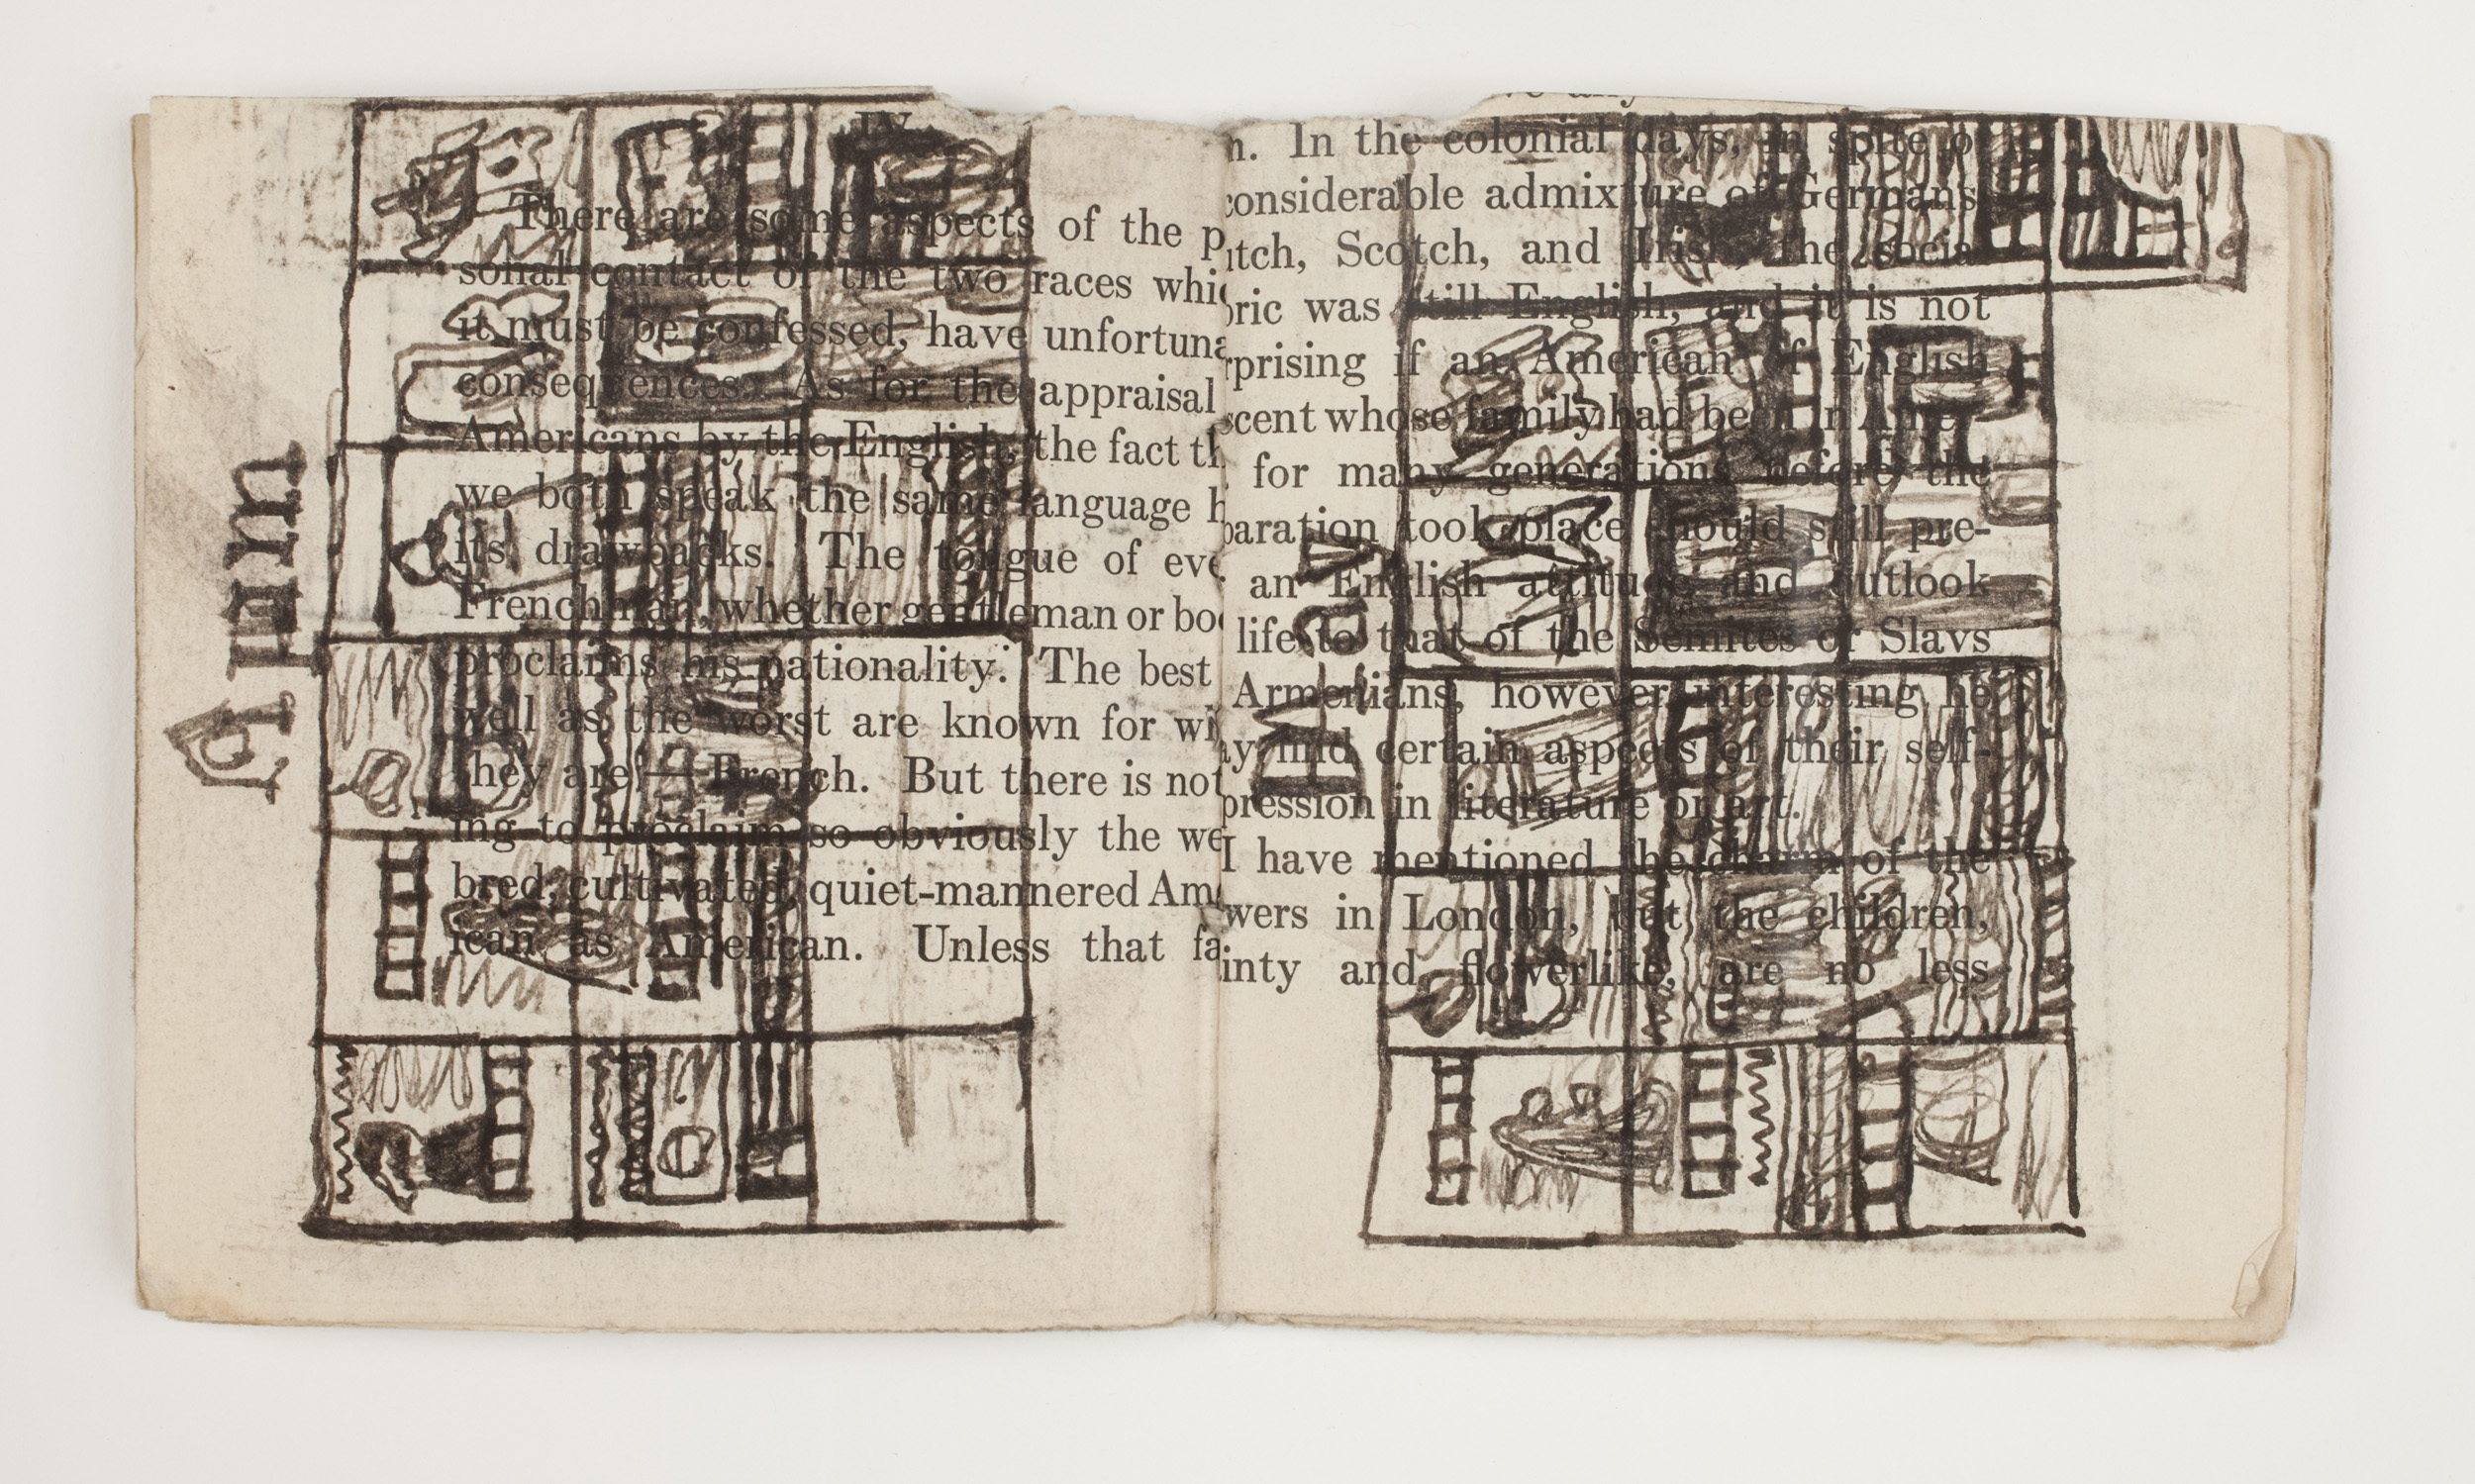 IV
There are some aspects of the p
sonal contact of the two races whic
it must be confessed, have unfortuna
consequences. As for the appraisal
Americans by the English, the fact th
we both speak the same language h
its drawbacks. The tongue of eve
Frenchman, whether gentleman or boo
proclaims his nationality. The best
well as the worst are known for wh
they are — French. But there is not
ing to proclaim so obviously the we
bred, cultivated, quiet-mannered Ame
ican as American. Unless that fa
n. In the colonial days, in spite o
considerable admixture of Germans
utch, Scotch, and Irish, the socia
bric was still English, and it is not
rprising if an American of English
scent whose family had been in Amer
for many generations before the
paration took place should still pre-
an English attitude and outlook
life to that of the Semites or Slavs
Armenians, however interesting he
ay find certain aspects of their self-
pression in literature or art.
I have mentioned the charm of the
wers in London, but the children,
inty and flowerlike, are no less